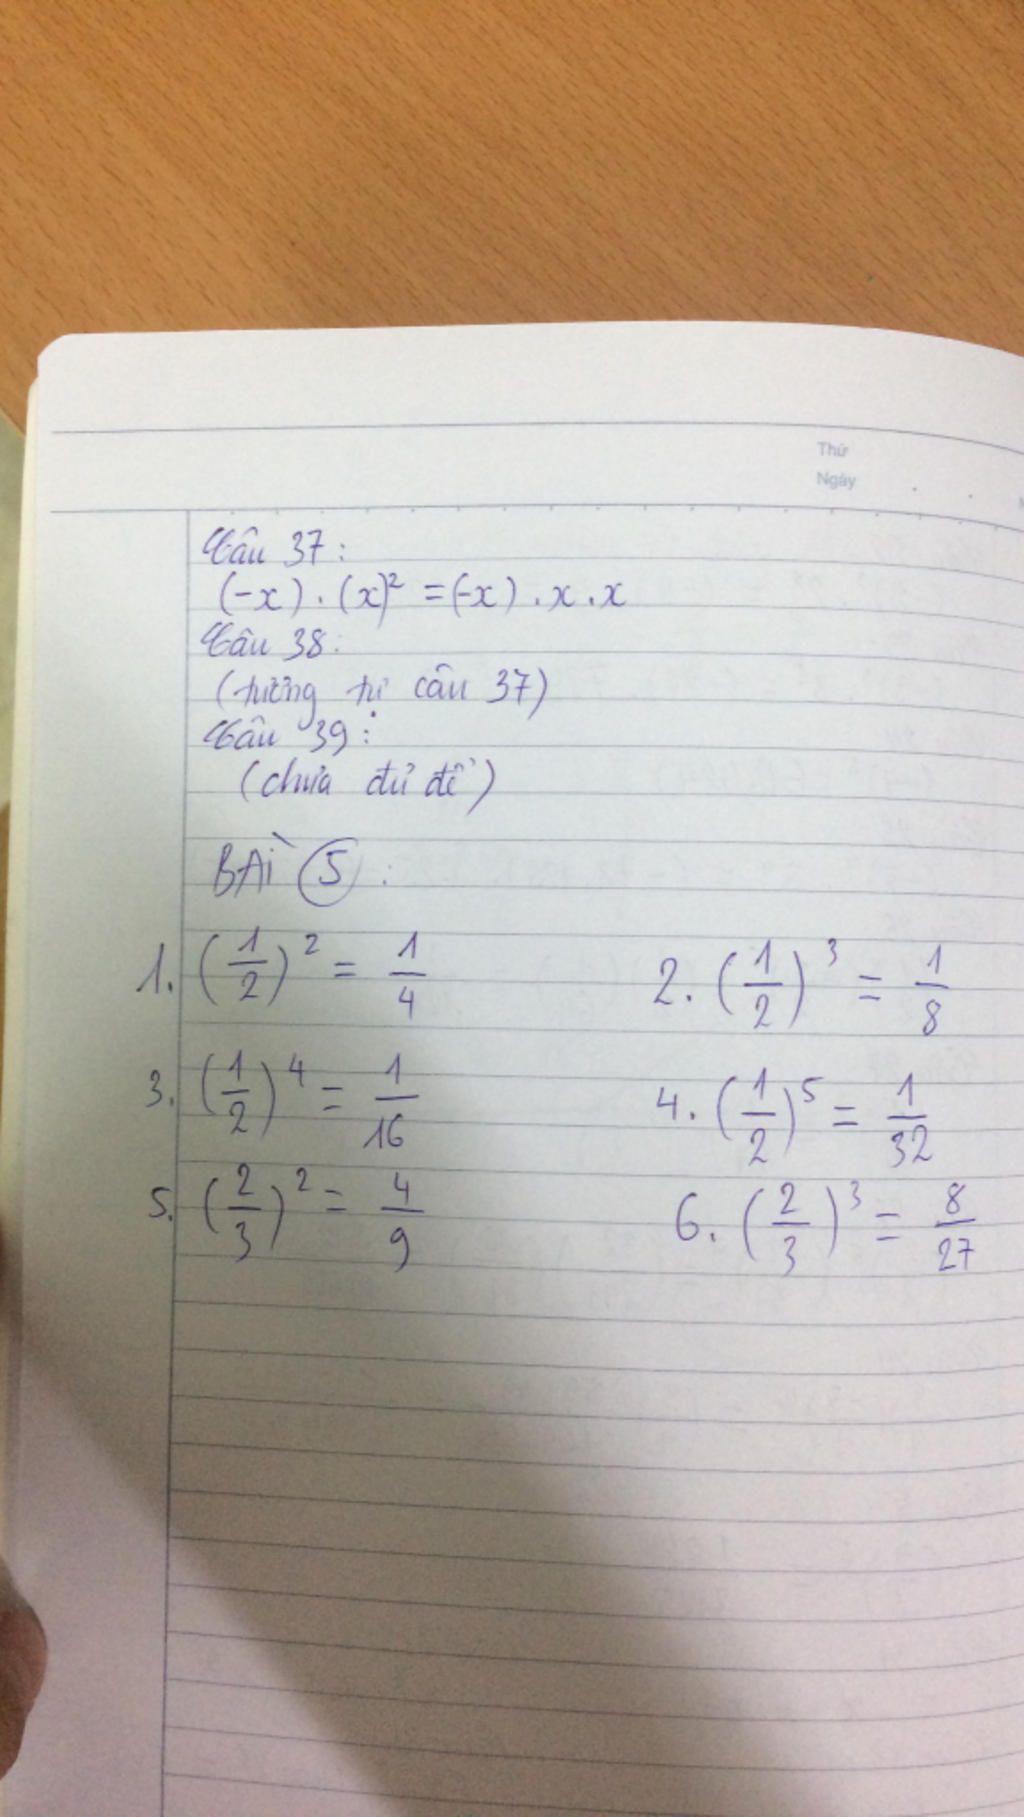 Thứ
Ngày
Câu 37:
(-x).(x)² = (-x).x.x
Câu 38:
(tương tự câu 37)
Câu 39:
(chưa đủ đề)
BÀI 5:
1. (1/2)² = 1/4
2. (1/2)³ = 1/8
3. (1/2)⁴ = 1/16
4. (1/2)⁵ = 1/32
5. (2/3)² = 4/9
6. (2/3)³ = 8/27